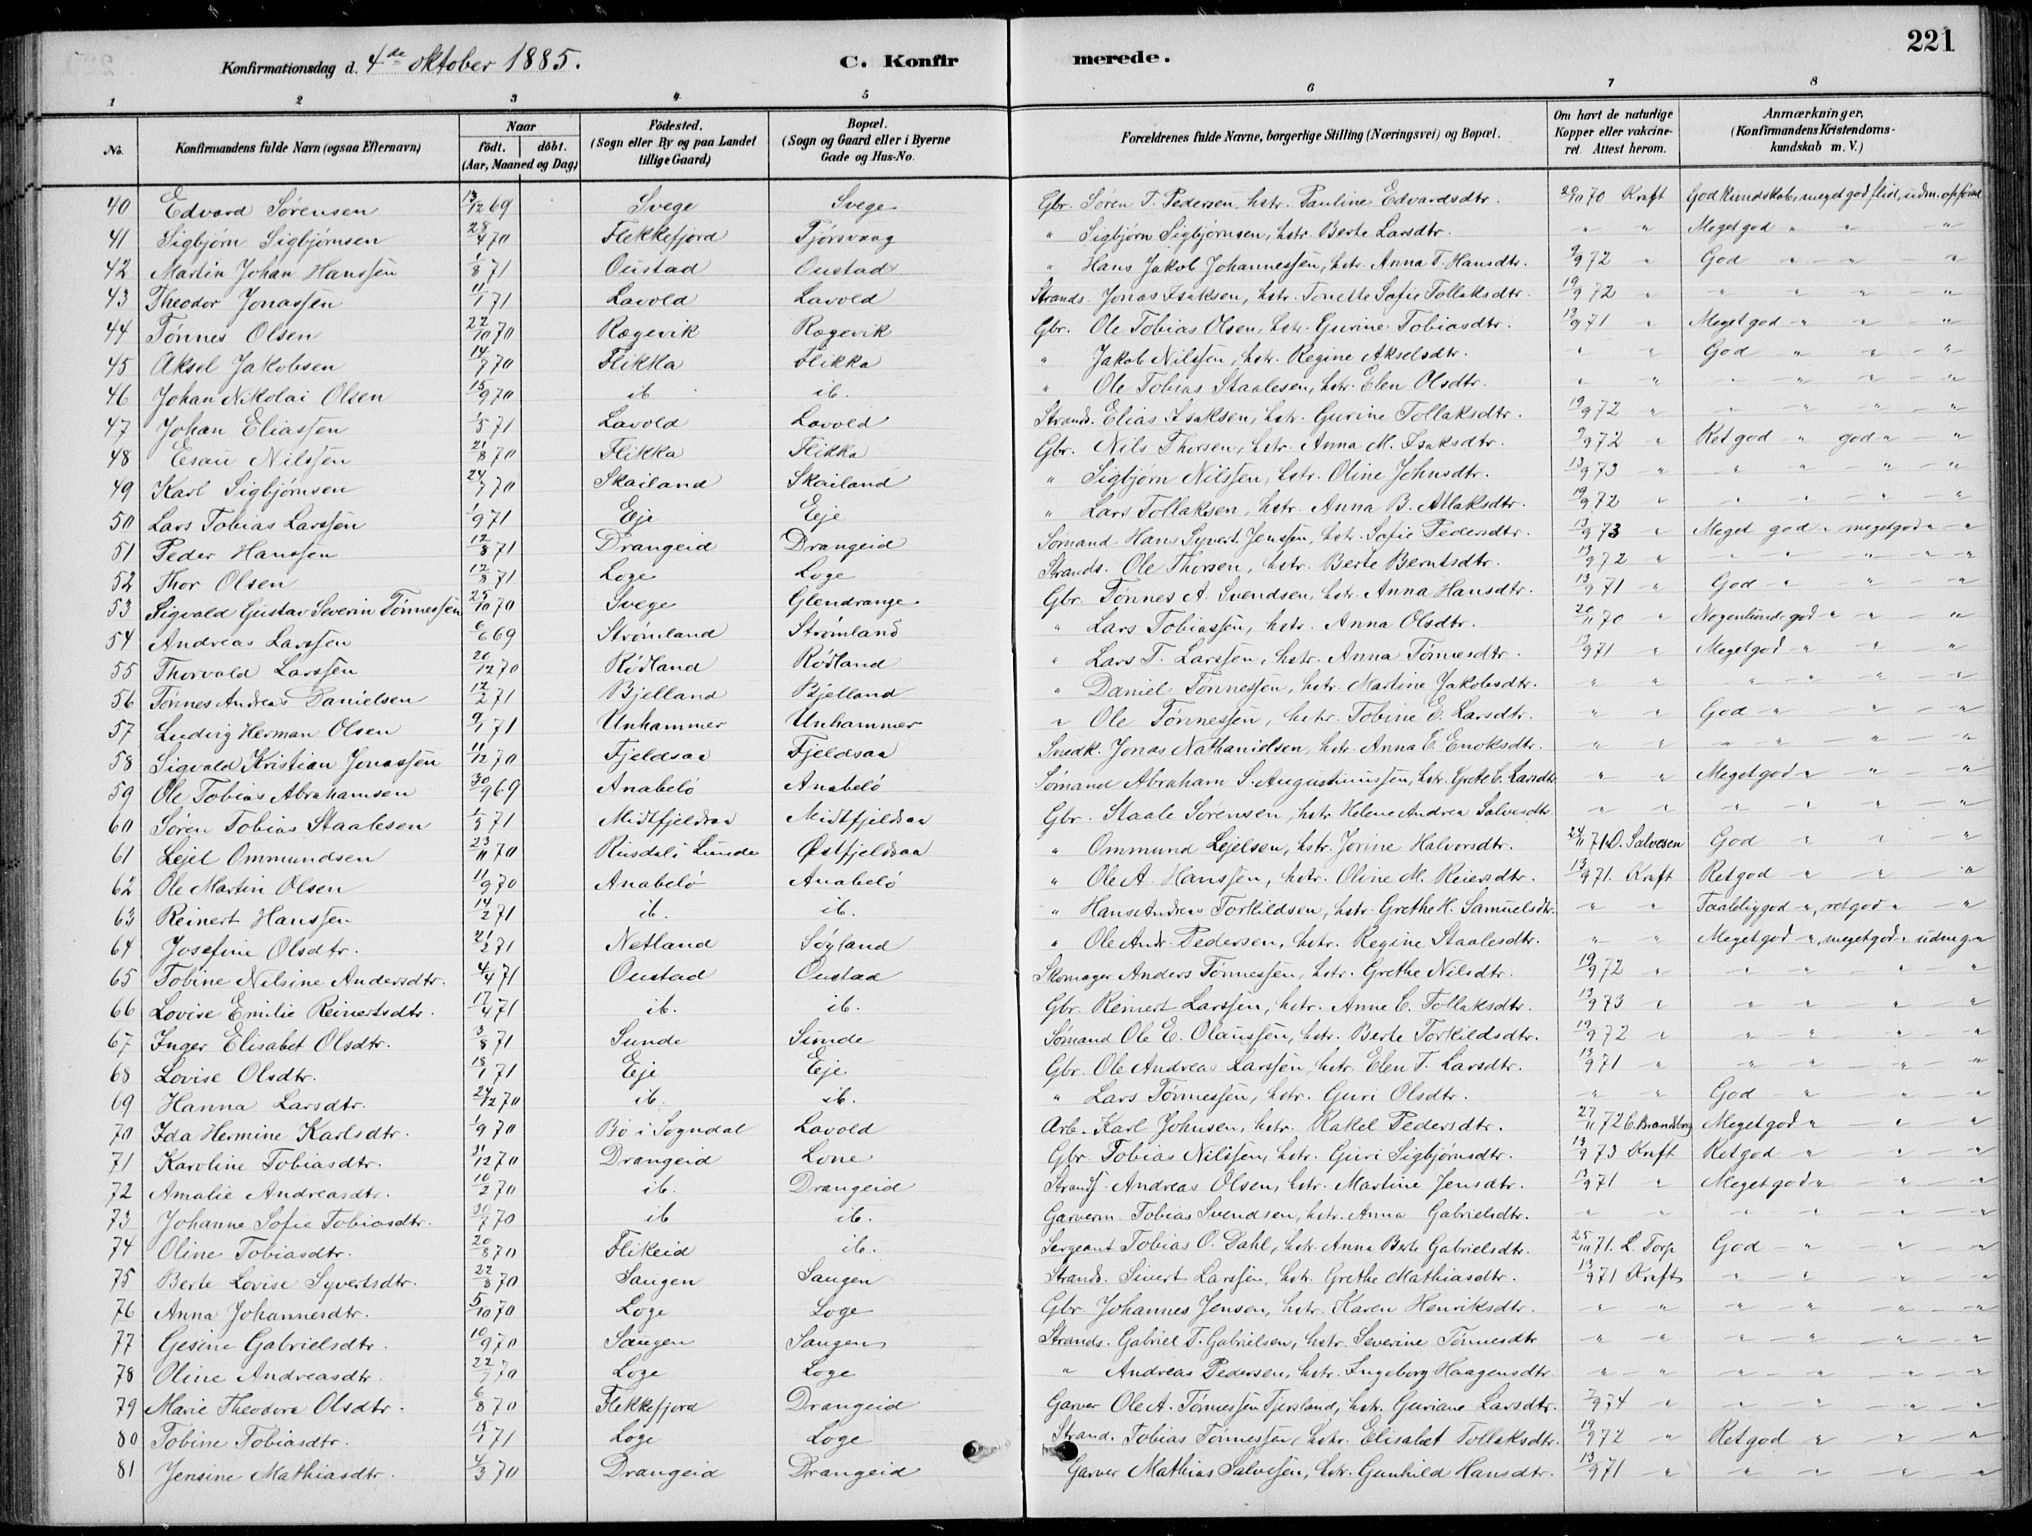 221
Konfirmationsdag d. 4de oktober 1885. C. Konfirmerede.
1 2 3 4 5 6 7 8
No. Konfirmandens fulde Navn (ogsaa Efternavn) Naar født. døbt. (Aar, Maaned og Dag) Fødested. (Sogn eller By og paa Landet tillige Gaard) Bopæl. (Sogn og Gaard eller i Byerne Gade og Hus-No. Forældrenes fulde Navne, borgerlige Stilling (Næringsvei) og Bopæl. Om havt de naturlige Kopper eller vakcineret. Attest herom. Anmærkninger, (Konfirmandens Kristendomskundskab m. V.)
40 Edvard Sørensen 13/12 69 Svege Svege Gbr. Søren T. Pedersen, hstr. Pauline Edvardsdtr. 70 Kraft God kundskab, meget god flid, udm. opførsel
41 Sigbjørn Sigbjørnsen 28/4 70 Flekkefjord Tjørsvaag " Sigbjørn Sigbjørnsen, hstr. Berte Larsdtr. " " Meget god " " "
42 Martin Johan Hanssen 1/8 71 Oustad Oustad " Hans Jakob Johannessen, hstr. Anna T. Hansdtr. 9/9 72 " God " " "
43 Theodor Jonassen 11/1 71 Lavold Lavold Strands. Jonas Isaksen, hstr. Tonette Sofie Tollaksdtr. 19/9 72 " " " " "
44 Tønnes Olsen 22/10 70 Rægevik Rægevik Gbr. Ole Tobias Olsen, hstr. Gurine Tobiasdtr. 13/9 71 " Meget god " " "
45 Aksel Jakobsen 14/7 70 Flikka Flikka " Jakob Nilssen, hstr. Regine Akselsdtr. " " God " " "
46 Johan Nikolai Olsen 15/9 70 ib. ib. " Ole Tobias Staalesen, hstr. Elen Olsdtr. " " " " " "
47 Johan Eliassen 1/5 71 Lavold Lavold Strands. Elias Isaksen, hstr. Gurine Tollaksdtr. 19/9 72 " " " " "
48 Esau Nilssen 21/8 70 Flikka Flikka Gbr. Nils Thorsen, hstr. Anna M. Isaksdtr. 9/9 72 " Ret god " god " "
49 Karl Sigbjørnsen 24/7 70 Skailand Skailand " Sigbjørn Nilssen, hstr. Oline Johnsdtr. 13/9 73 " " " " "
50 Lars Tobias Larssen 1/9 71 Eje Eje " Lars Tollaksen, hstr. Anna B. Atlaksdtr. 19/9 72 " " " " "
51 Peder Hanssen 12/8 71 Drangeid Drangeid Sømand Hans Syvert Jenssen, hstr. Sofie Pedersdtr. 13/9 73 " Meget god " meget god " "
52 Thor Olsen 12/8 71 Loge Loge Strands. Ole Thorsen, hstr. Berte Berntsdtr. 13/9 72 " " " " "
53 Sigvald Gustav Severin Tønnessen 25/10 70 Svege Glendrange Gbr. Tønnes A. Svendsen, hstr. Anna Hansdtr. 13/9 71 " God " " "
54 Andreas Larssen 6/6 69 Strømland Strømland " Lars Tobiassen, hstr. Anna Olsdtr. 20/11 70 " Nogenlunde god " " "
55 Thorvald Larssen 20/12 70 Rødland Rødland " Lars T. Larssen, hstr. Anna Tønnesdtr. 13/9 71 " Meget god " " "
56 Tønnes Andreas Danielsen 12/2 71 Bjelland Bjelland " Daniel Tønnessen, hstr. Martine Jakobsdtr. " " " " " "
57 Ludvig Herman Olsen 9/1 71 Unhammer Unhammer " Ole Tønnessen, hstr. Tobine E. Larsdtr. " " God " " "
58 Sigvald Kristian Jonassen 11/12 70 Fjeldsaa Fjeldsaa Snedk. Jonas Nathanielsen, hstr. Anna E. Enoksdtr. " " " " " "
59 Ole Tobias Abrahamsen 30/9 69 Anabelø Anabelø Sømand Abraham S. Augustinussen, hstr. Grete C. Larsdtr. " " Meget god " " "
60 Søren Tobias Staalesen 1/3 71 Midtfjeldsaa Midtfjeldsaa Gbr. Staale Sørensen, hstr. Helene Andrea Salvesdtr. " " " " " "
61 Lejel Ommundsen 23/11 70 Rusdal i Lunde Østfjeldsaa " Ommund Lejelsen, hstr. Jorine Halvorsdtr. 24/11 71 O. Salvesen God " " "
62 Ole Martin Olsen 11/9 70 Anabelø Anabelø " Ole A. Hanssen, hstr. Oline M. Reiersdtr. 13/9 71. Kraft Ret god " " "
63 Reinert Hanssen 14/2 71 ib. ib. " Hans Andreas Torkildsen, hstr. Grethe H. Samuelsdtr. " " Taalelig god ", ret god " "
64 Josefine Olsdtr. 21/2 71 Netland Søyland " Ole Andr. Pedersen, hstr. Regine Staalesdtr. " " Meget god ", meget god " udm. g. "
65 Tobine Nilsine Andersdtr. 4/4 71 Oustad Oustad Skomager Anders Tønnessen, hstr. Grethe Nilsdtr. 19/9 72 " " " " "
66 Lovise Emilie Reinertsdtr. 17/4 71 ib. ib. Gbr. Reinert Larssen, hstr. Anne C. Tollaksdtr. 13/9 73 " " " " "
67 Inger Elisabet Olsdtr. 3/8 71 Sunde Sunde Sømand Ole E. Olaussen, hstr. Berte Torkildsdtr. 19/9 72 " " " " "
68 Lovise Olsdtr. 18/1 71 Eje Eje Gbr. Ole Andreas Larssen, hstr. Elen T. Larsdtr. 13/9 71 " " " " "
69 Hanna Larsdtr. 24/12 70 ib. ib. " Lars Tønnessen, hstr. Guri Olsdtr. " " God " " "
70 Ida Hermine Karlsdtr. 1/9 70 Bø i Sogndal Lavold Arb. Karl Johnsen, hstr. Rakel Pedersdtr. 27/11 72 C. Brandsberg Meget god " " "
71 Karoline Tobiasdtr. 31/12 70 Drangeid Lone Gbr. Tobias Nilssen, hstr. Guri Sigbjørnsdtr. 13/9 73 Kraft Ret god " " "
72 Amalie Andreasdtr. 10/2 70 ib. Drangeid Strands. Andreas Olsen, hstr. Martine Jensdtr. 13/9 71 " Meget god " " "
73 Johanne Sofie Tobiasdtr. 30/7 70 ib ib. Garverm. Tobias Svendsen, hstr. Anna Gabrielsdtr. " " " " " "
74 Oline Tobiasdtr. 20/8 70 Flikeid ib. Sergeant Tobias O. Dahl, hstr. Anna Berte Gabrielsdtr. 25/10 71. L. Torp God " " "
75 Berte Lovise Syvertsdtr. 22/8 70 Saugen Saugen Strands. Sivert Larssen, hstr. Grethe Mathiasdtr. 13/9 71 Kraft " " " "
76 Anna Johannesdtr. 5/10 70 Loge Loge Gbr. Johannes Jensen, hstr. Karen Henriksdtr. " " " " " "
77 Gesine Gabrielsdtr. 10/9 70 Saugen Saugen Strands. Gabriel T. Gabrielsen, hstr. Severine Tønnesdtr " " " " " "
78 Oline Andreasdtr. 22/7 70 Loge Loge " Andreas Pedersen, hstr. Ingeborg Haagensdtr. " " " " " "
79 Marie Theodora Olsdtr. 6/8 70 Flekkefjord Drangeid Garver Ole A. Tønnessen Tjersland, hstr. Guriane Larsdtr. 7/9 74 " " " " "
80 Tobine Tobiasdtr. 15/1 71 Loge Loge Strand. Tobias Tønnessen, hstr. Elisabet Tollaksdtr. 19/9 72 " Ret god " " "
81 Jensine Mathiasdtr. 4/3 70 Drangeid Drangeid Garver Mathias Salvesen, hstr. Gunhild Hansdtr. 13/9 71 " " " " "